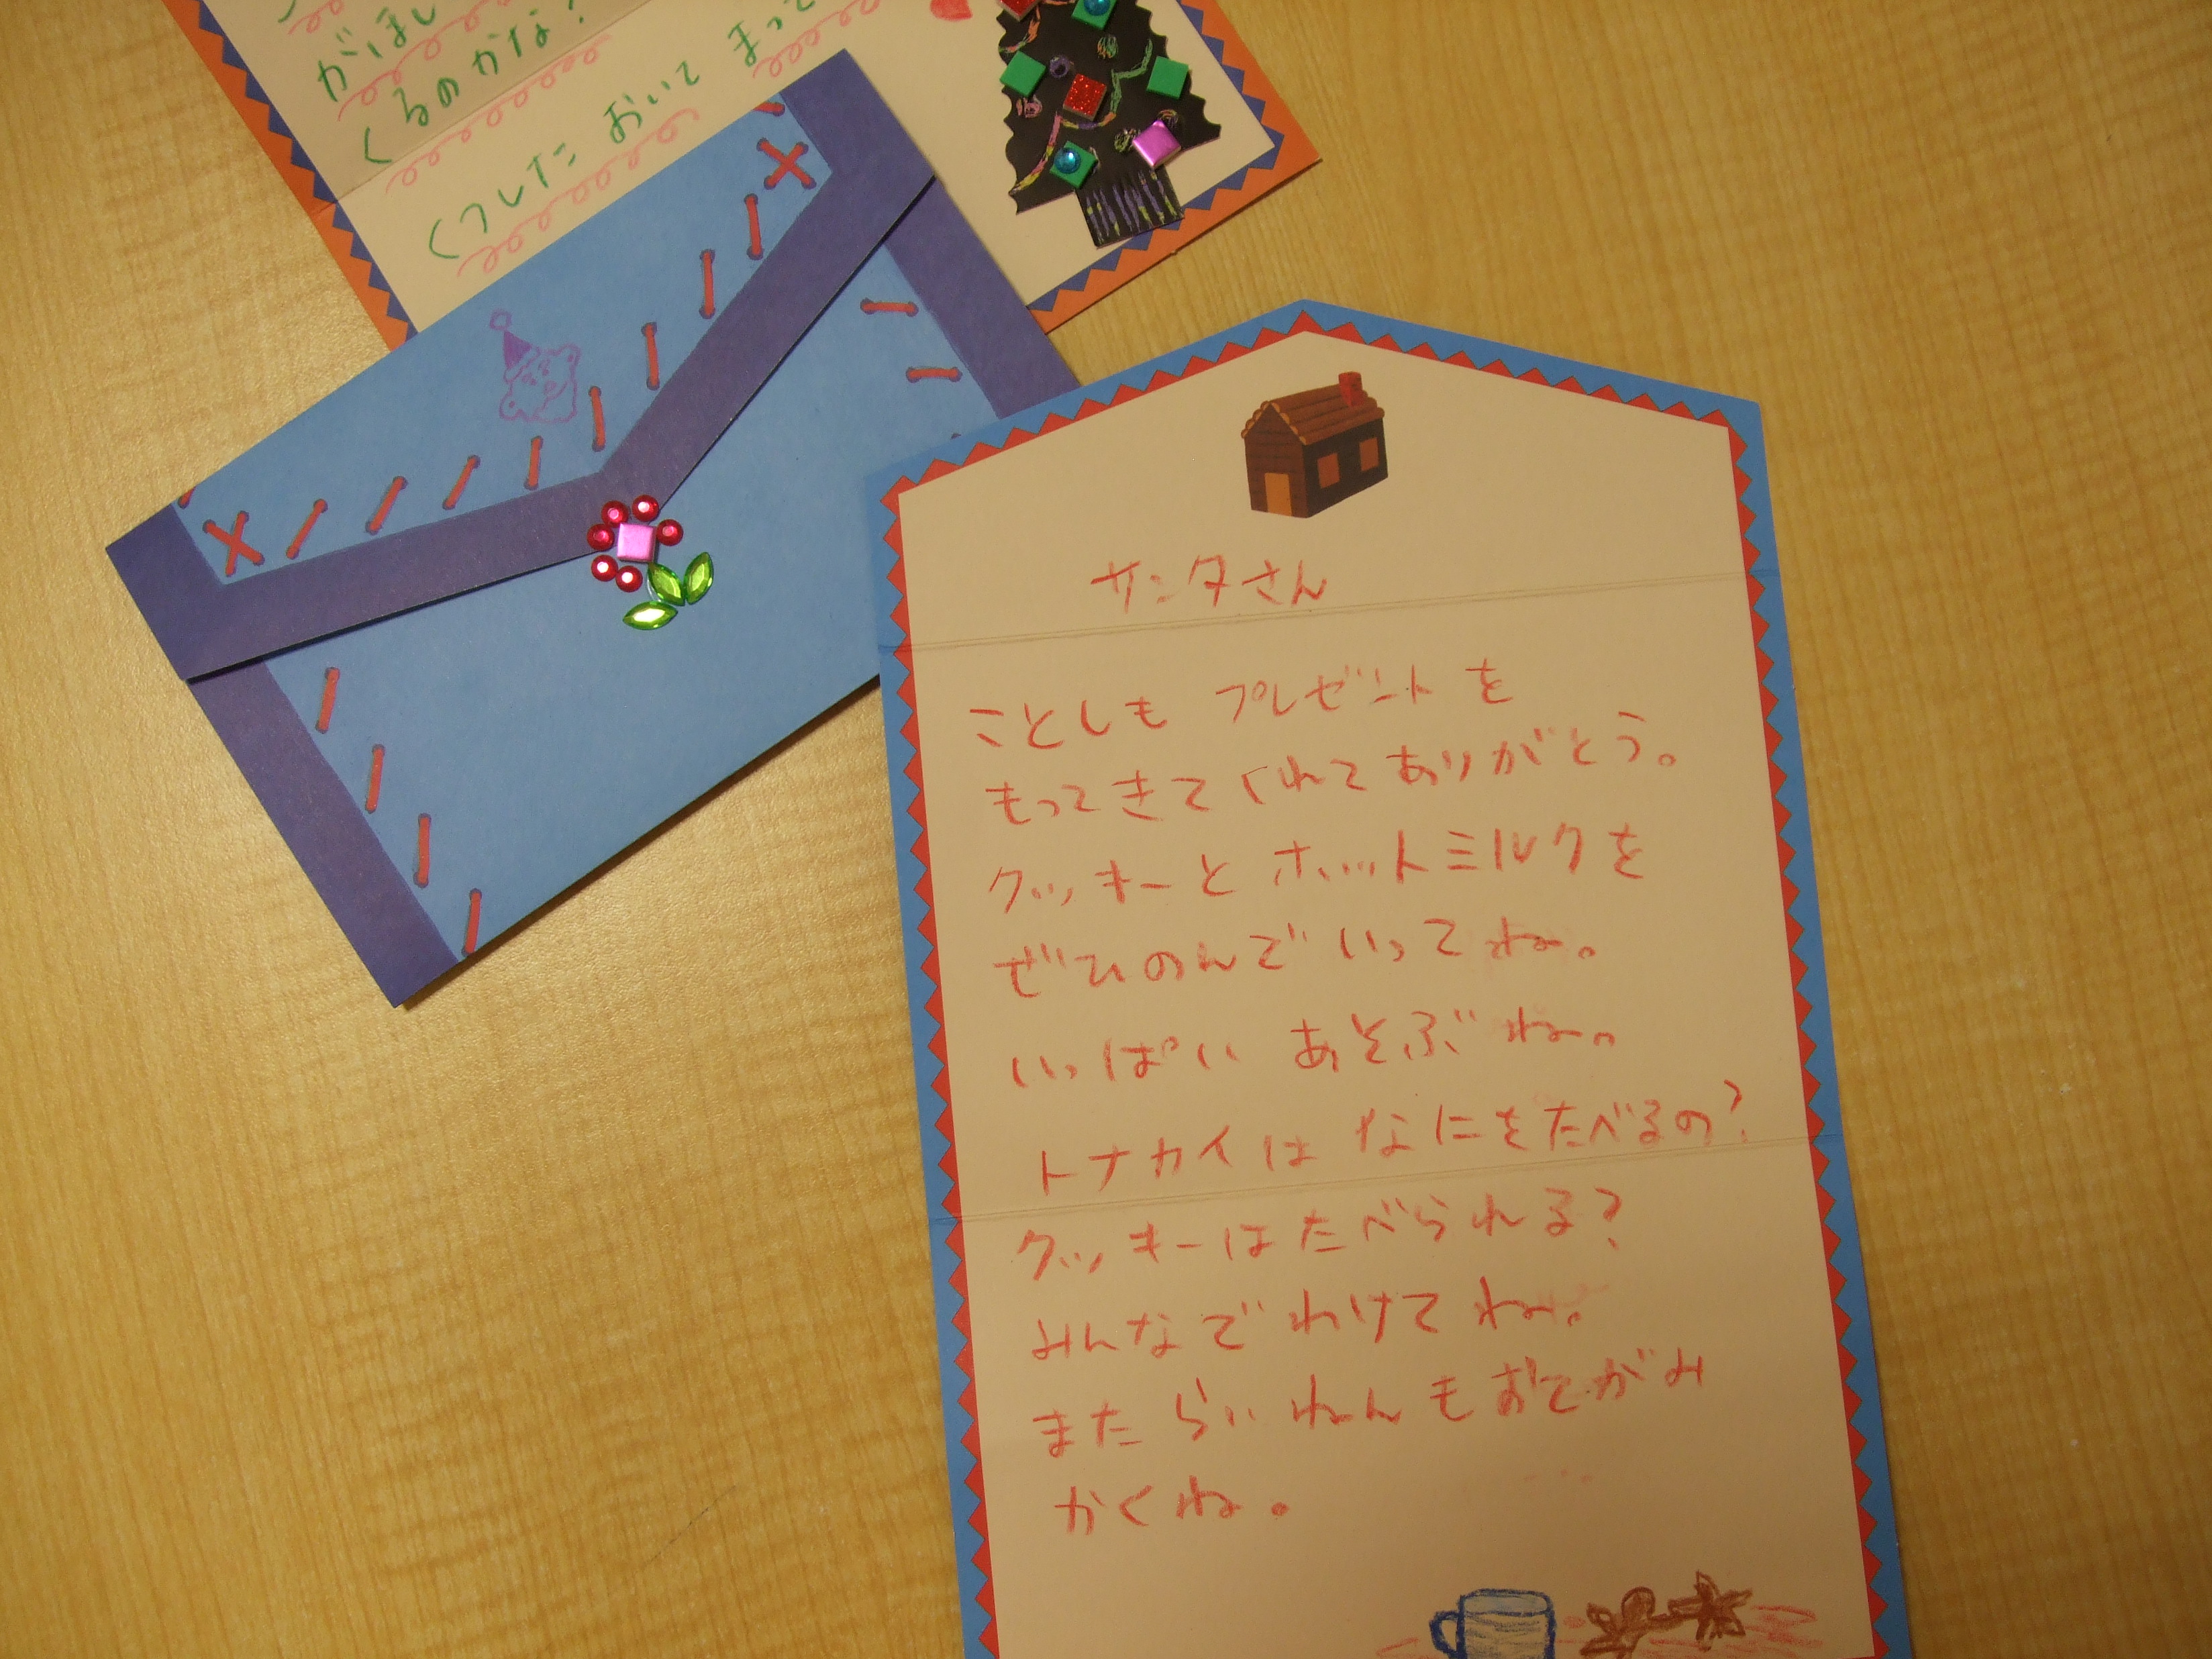 がほし
くるのかな？
くつしたに おいて まって
サンタさん
ことしも プレゼントを
もってきてくれてありがとう。
クッキーと ホットミルクを
ぜひのんで いってね。
いっぱい あそぶね。
トナカイは なにをたべるの？
クッキーはたべられる？
みんなで わけてね。
また らいねんもおてがみ
かくね。